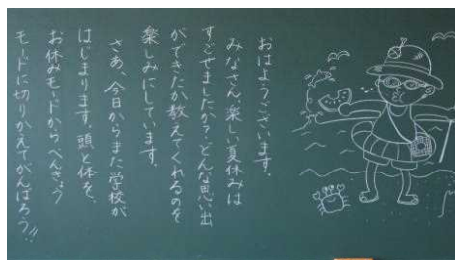 おはようございます。
みなさん、楽しい夏休みは
すごせましたか?どんな思い出
ができたか教えてくれるのを
楽しみにしています。
さあ、今日からまた学校が
はじまります。頭と体を、
お休みモードから、べんきょう
モードに切りかえてがんばろう!!